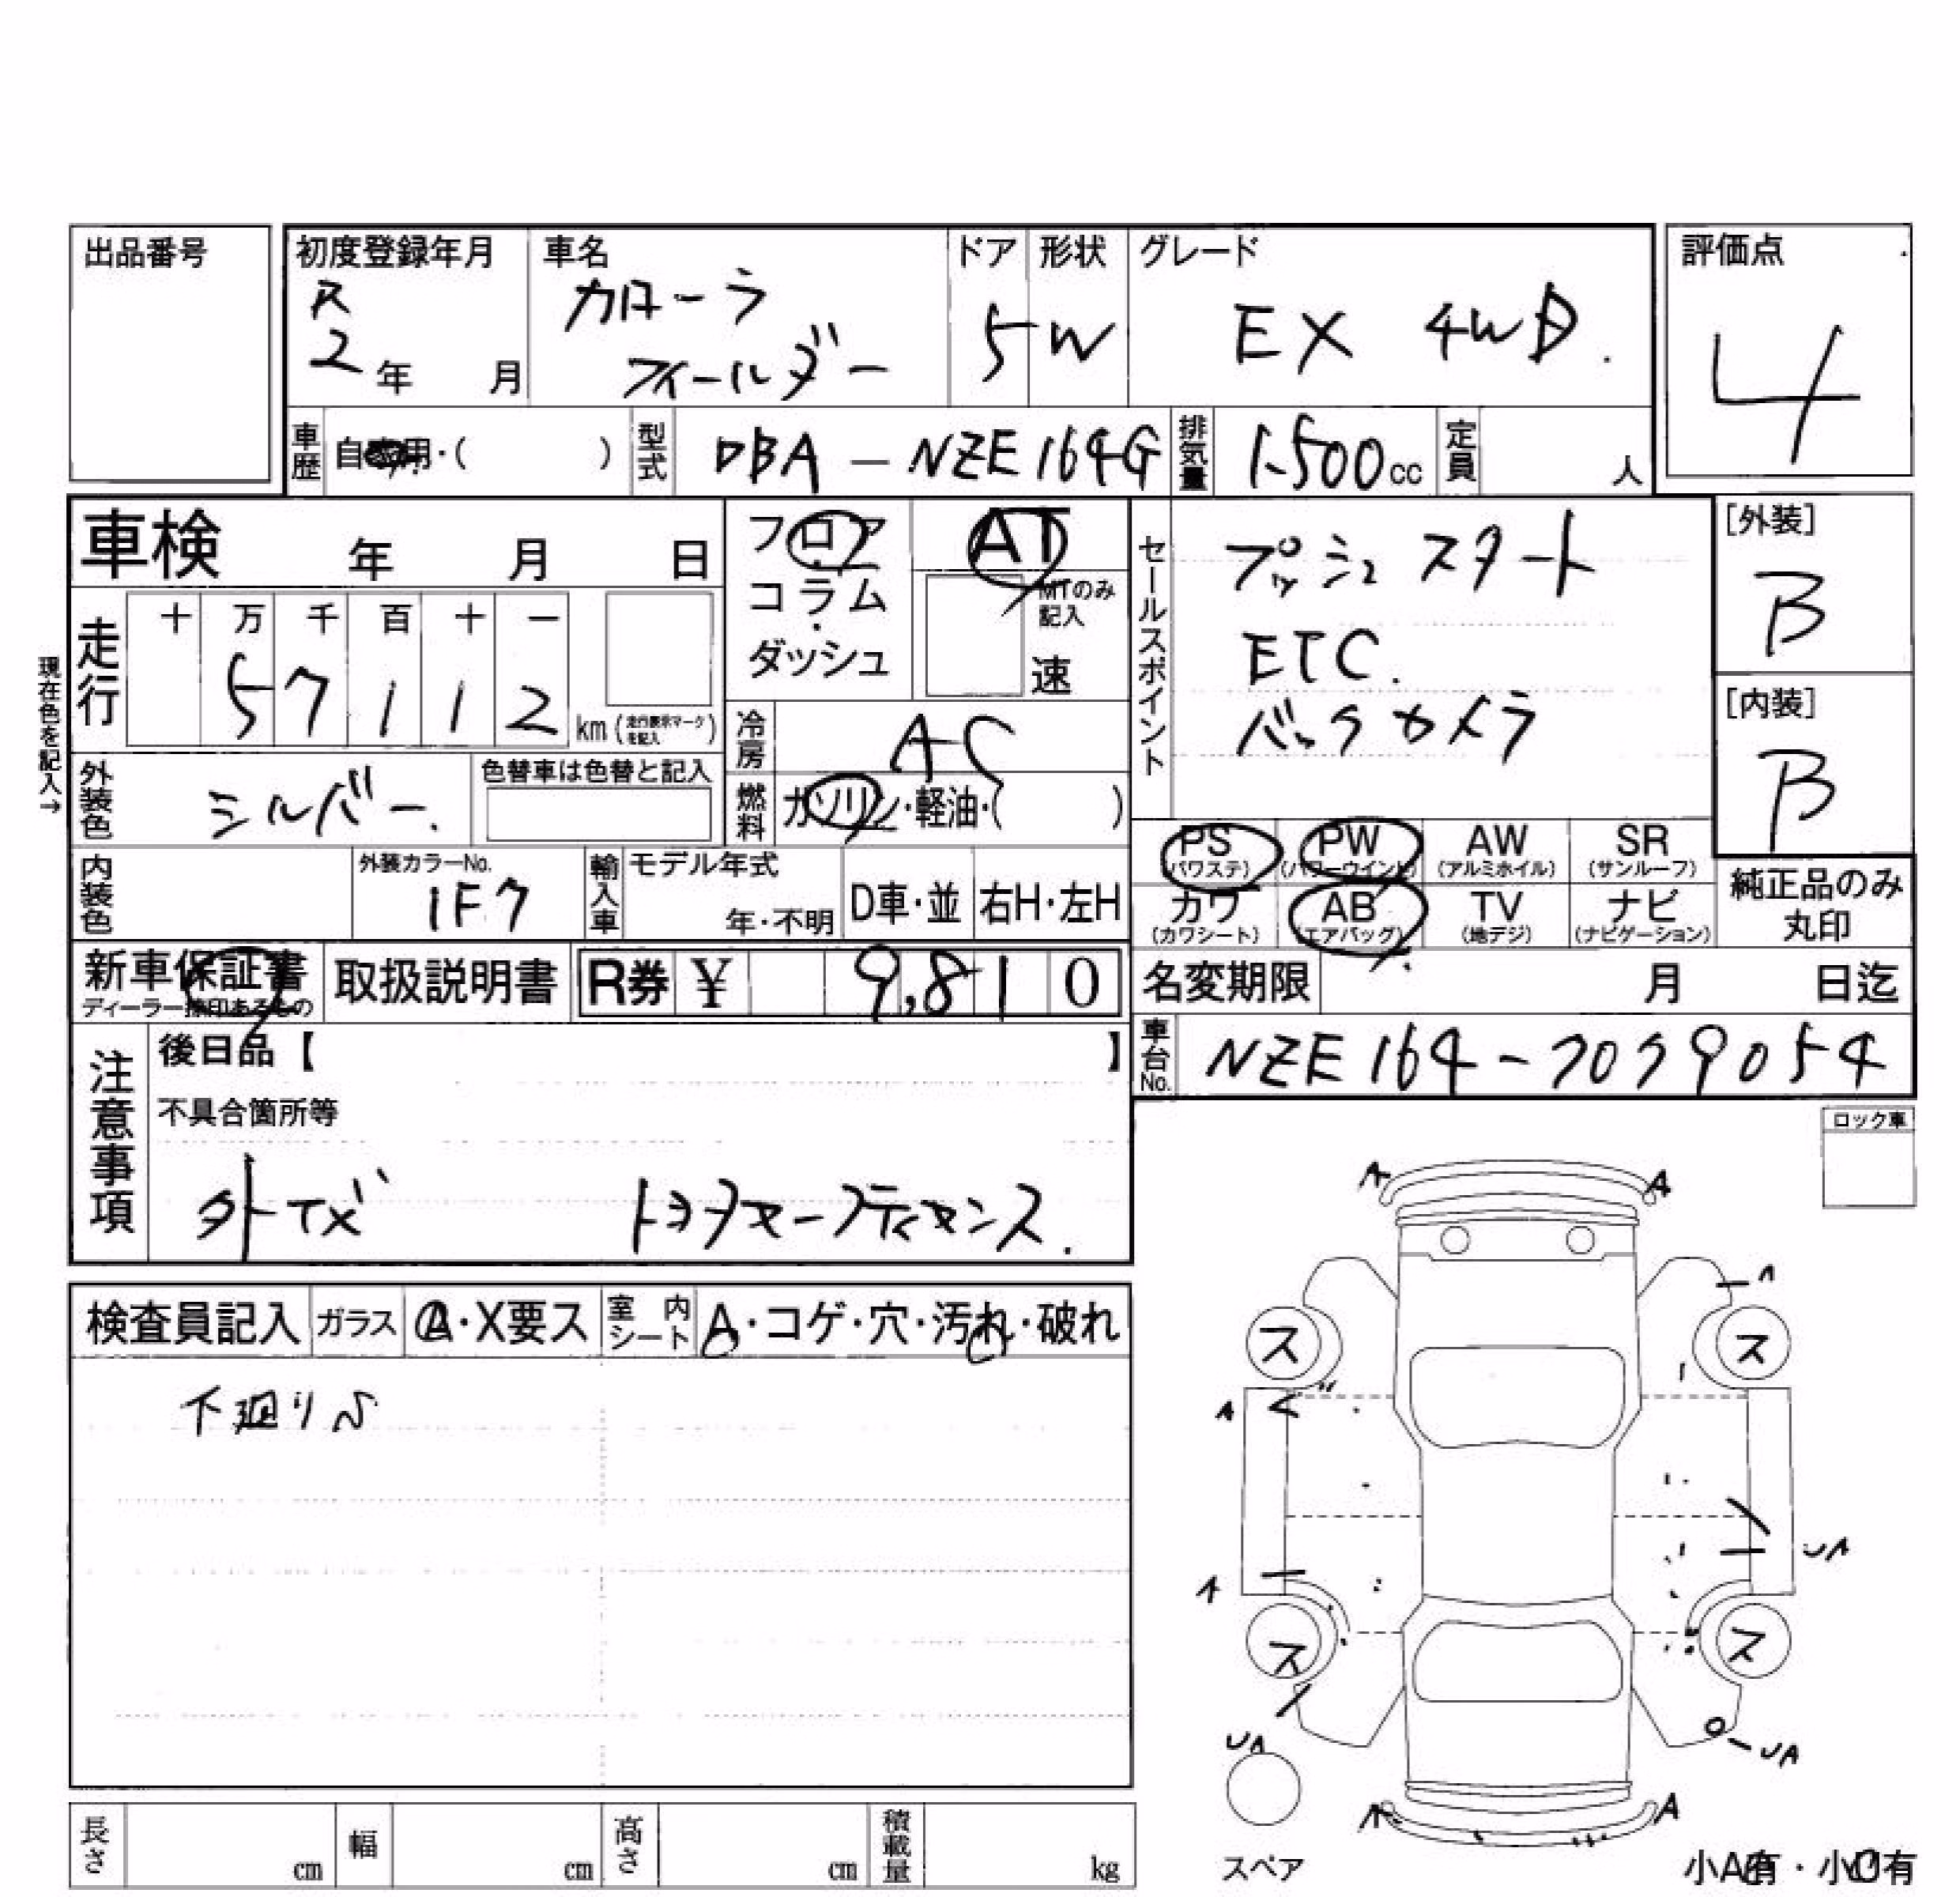 出品番号
初度登録年月 R 2年 月
車名 カローラ フィールダー
ドア 5
形状 W
グレード EX 4WD.
評価点 4
車歴 自家用・( )
型式 DBA-NZE164G
排気量 1500cc
定員 人
車検 年 月 日
フロア・コラム・ダッシュ
AT
MTのみ記入
速
セールスポイント
プッシュスタート
ETC.
バックカメラ
[外装] B
[内装] B
現在色を記入→
走行 十 万 千 百 十 一
5 7 1 1 2 km (走行表示マークを記入)
冷房 AC
外装色 シルバー.
色替車は色替と記入
燃料 ガソリン・軽油・( )
PS (パワステ) PW (パワーウインド) AW (アルミホイル) SR (サンルーフ)
カワ (カワシート) AB (エアバッグ) TV (地デジ) ナビ (ナビゲーション)
純正品のみ丸印
内装色
外装カラーNo. 1F7
輸入車 モデル年式 年・不明
D車・並 右H・左H
新車保証書
取扱説明書
R券 ¥ 9,810
名変期限 月 日迄
車台No. NZE164-7079054
注意事項
後日品【 】
不具合箇所等
外キズ
ロック車
検査員記入
ガラス A・X要ス
室内シート A・コゲ・穴・汚れ・破れ
下廻りS
A A
A
ス ス
A
UA
A
ス ス
UA UA
A A
スペア
長さ cm 幅 cm 高さ cm 積載量 kg
小A有・小U有